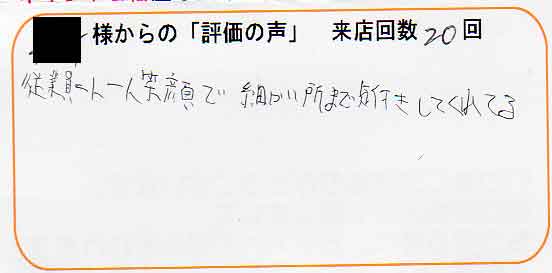 様からの「評価の声」 来店回数20回
従業員の一人一人笑顔で 細かい所まで気付きしてくれてる